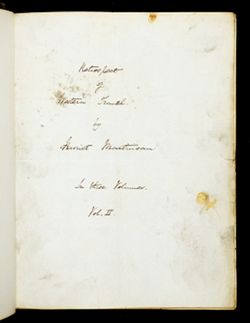 Retrospect
of
Western Travel.
by
Harriet Martineau
In three Volumes.
Vol. II.